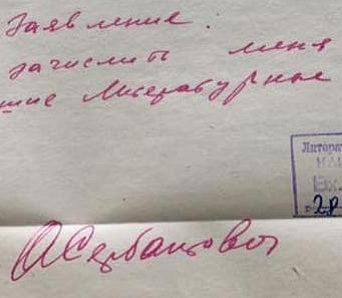 Заявление.
зачислить меня
шие Литературные
Литера
Вх.
28